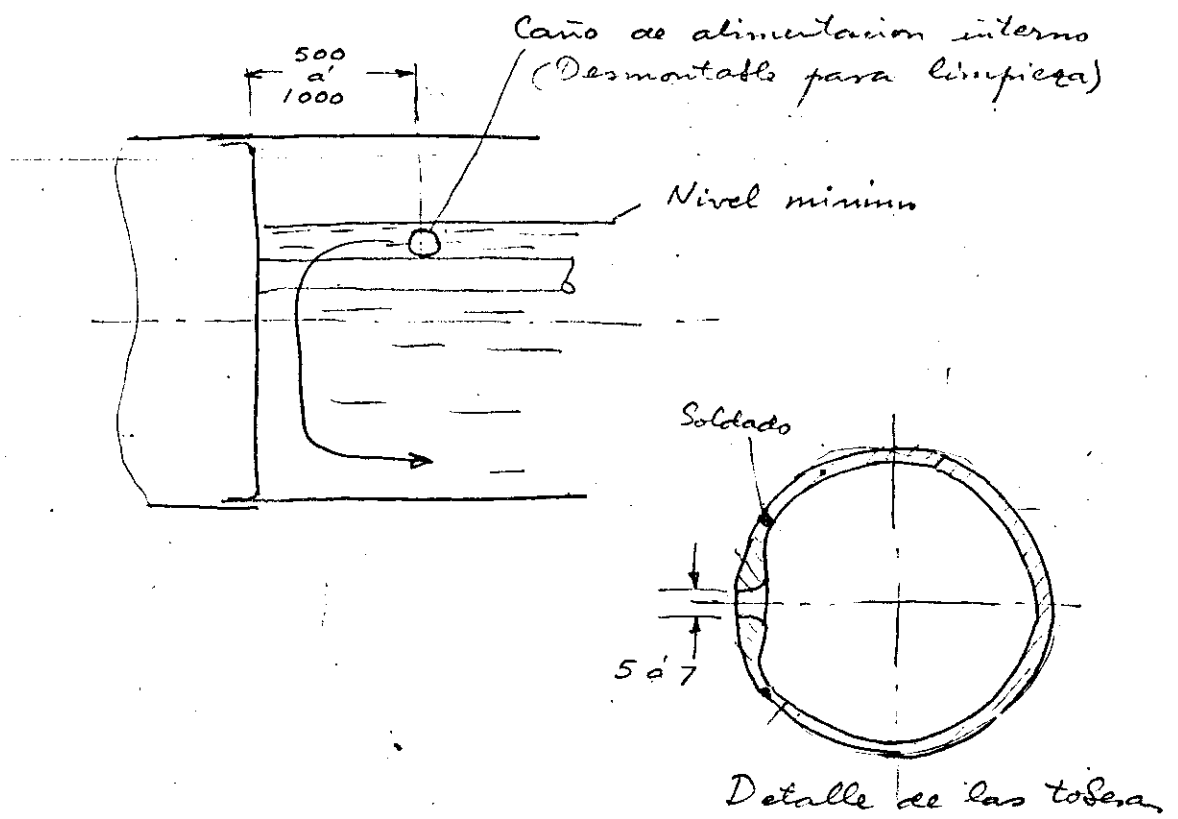 Caño de alimentacion interno
(Desmontable para limpieza)
500
á
1000
Nivel minimo
Soldado
5 ó 7
Detalle de las toberas